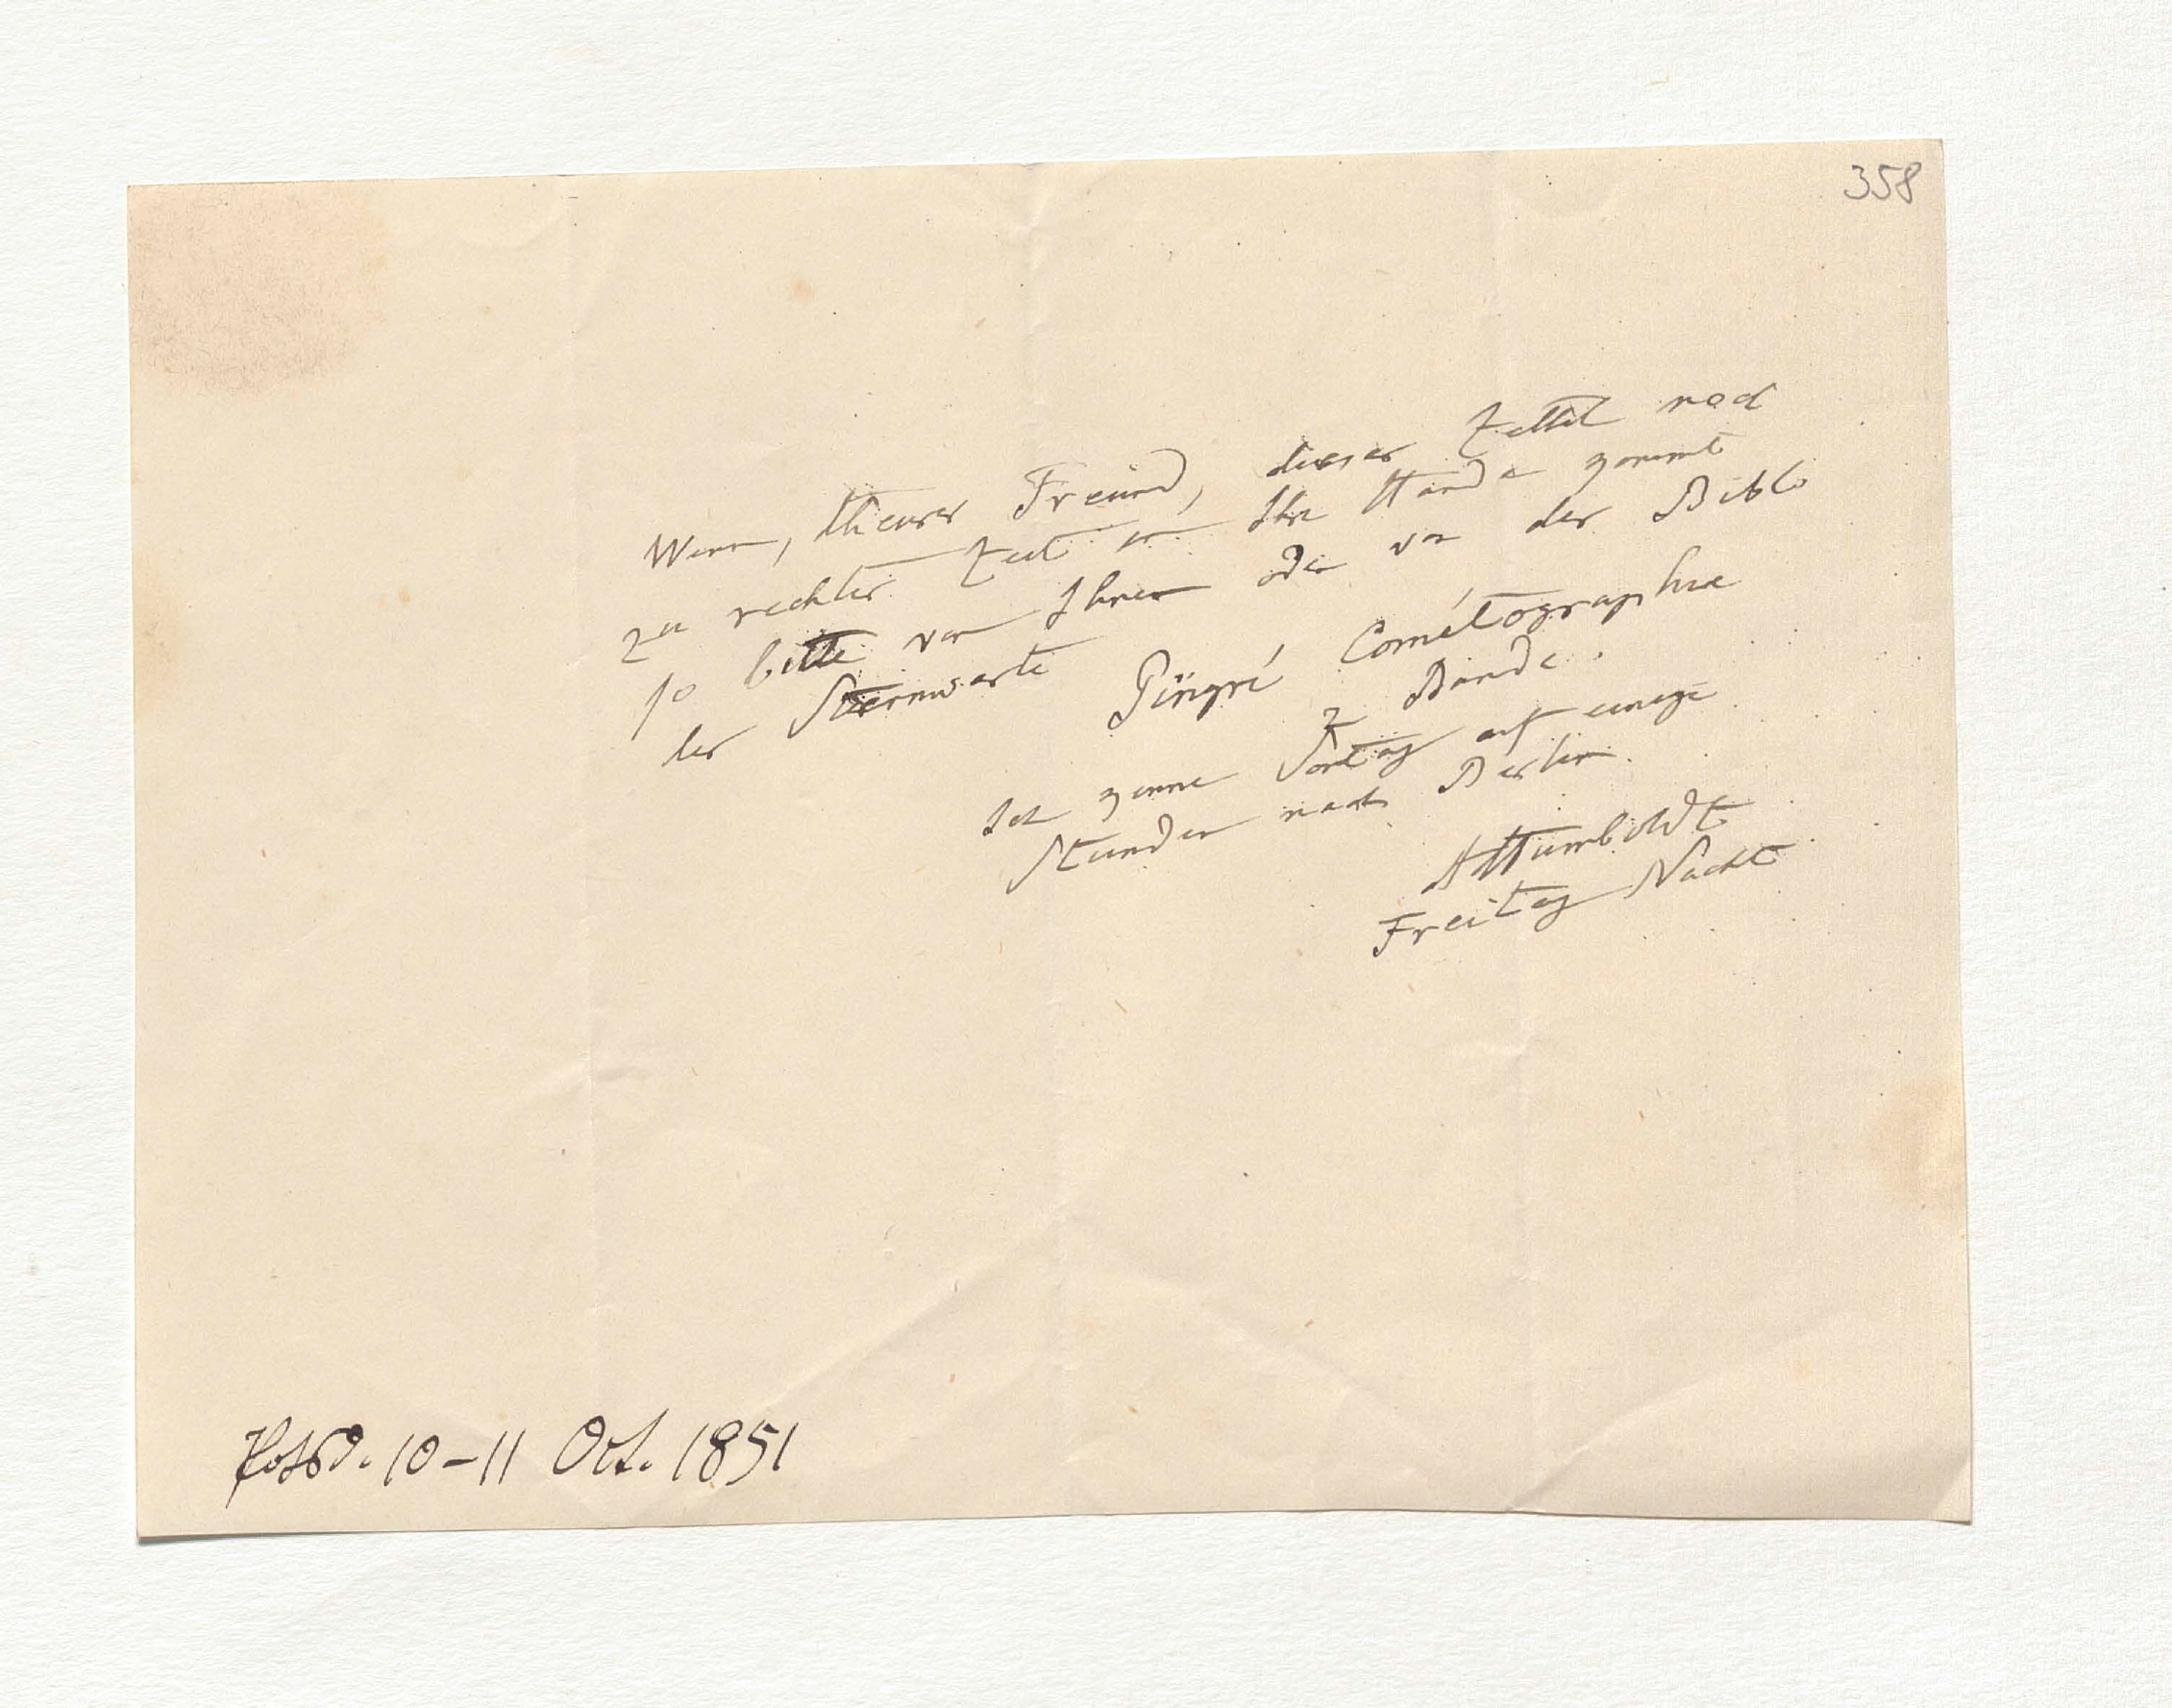 358
Wenn, theurer Freund, dieser Zettel noch
zu rechter Zeit in Ihre Hände kommt
so bitte von Ihnen oder von der Bibl.
der Sternwarte Pingré Cométographie
2 Bände.
Ich komme Sontag auf einige
Stunden nach Berlin.
AHumboldt
Freitag Nacht
Potsd. 10–11 Oct. 1851